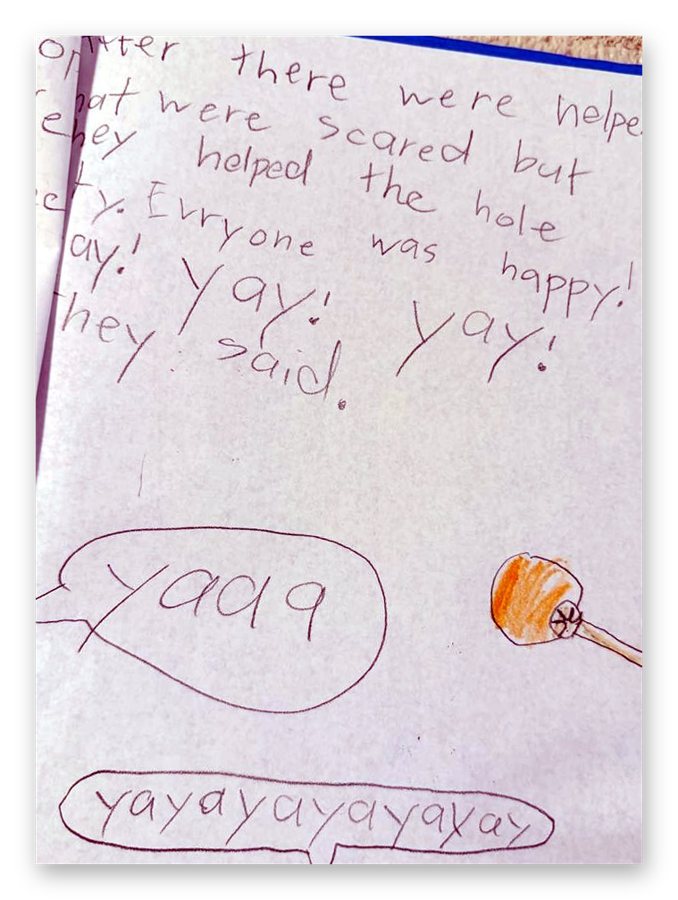 there were helpe
hat were scared but
hey helped the hole
ty. Evryone was happy!
ay! yay! yay!
They said.
yaaa
yayayayayayayay